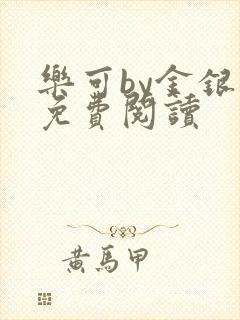 樂可by金銀
免費閱讀
黃馬甲